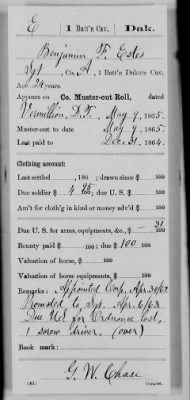 E 1 Batt'n Cav. Dak.
Benjamin F. Estes
Sgt., Co. A, 1 Batt'n Dakota Cav.
Age 24 years.
Appears on Co. Muster-out Roll, dated
Vermillion, D.T., May 9, 1865.
Muster-out to date May 9, 1865.
Last paid to Dec. 31, 1864.
Clothing account:
Last settled , 186 ; drawn since $ 100
Due soldier $ 100; due U. S. $ 100
Am't for cloth'g in kind or money adv'd $ 100
Due U. S. for arms, equipments, &c., $ 31/100
Bounty paid $ 100; due $ 100 100
Valuation of horse, $ 100
Valuation of horse equipments, $ 100
Remarks: Appointed Corp. Apr. 30/62
Promoted to Sgt. Apr. 6/63
Due U.S. for Ordnance lost,
1 screw driver. (over)
Book mark:
G. W. Chase
Copyist.